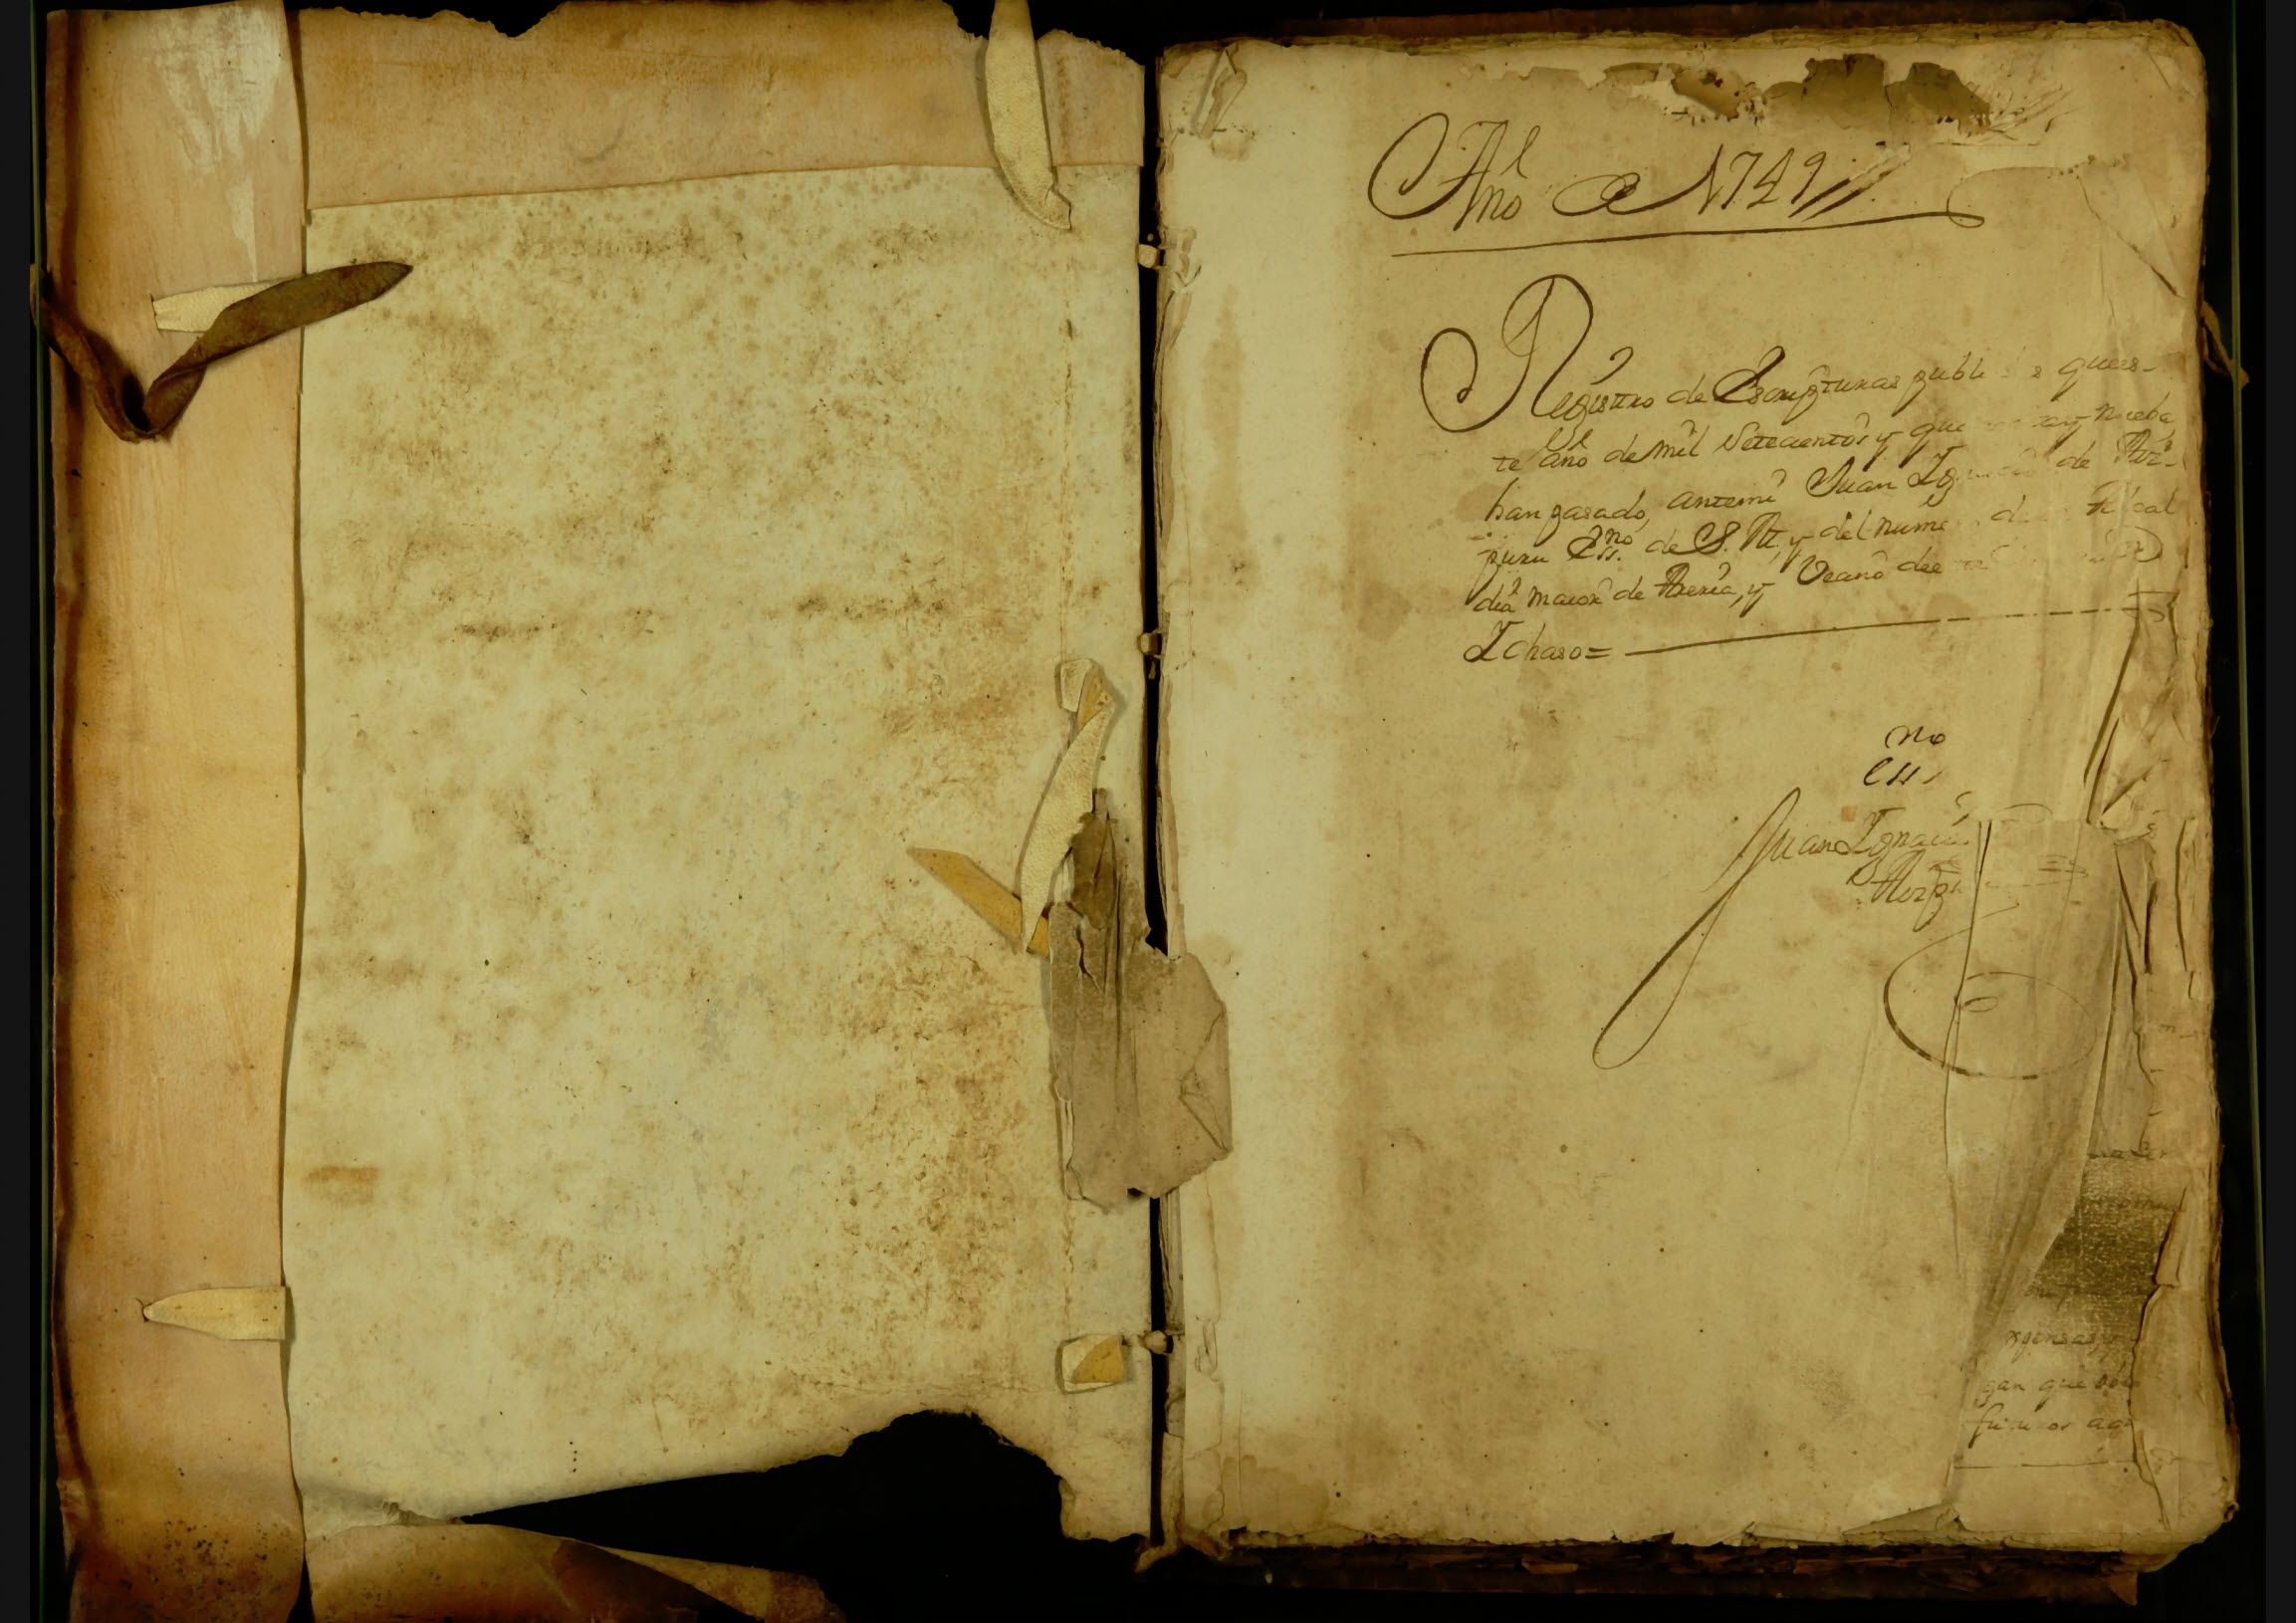 Año de 1749
Registro de Escripturas publi s ques-
te año de mil Setecientos y que ta y nuebe
han pasado, antemi Juan Ignacio de Az-
puru Essno. de S. M. y del nume d Alcal
dia maior de Areria, y Vecino de
Ichaso =
no
ess
Juan Ignacio
Azpu
gan que
futuros